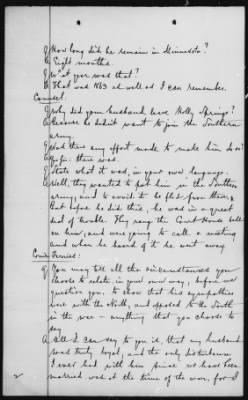 Q How long did he remain in Minnesota?
A Eight months.
Q What year was that?
A That was 1863 as well as I can remember.
Counsel.
Q Why did your husband leave Holly Springs?
A Because he didn't want to join the Southern
army.
Q Was there any effort made to make him do so?
A Yes: there was.
Q State what it was, in your own language.
A Well, they wanted to put him in the Southern
army, and to avoid it he left from there;
but before he did this, he was in a great
deal of trouble. They rang the Court House bell
on him, and were going to call a meeting
and when he heard of it he went away
Q You may tell all the circumstances you
choose to relate, in your own way, before we
question you, to show that his sympathies
were with the North, and opposed to the South
in the war - anything that you choose to
say
A All I can say to you is, that my husband
was truly loyal, and the only disturbance
I ever had with him since we have been
married was at the time of the war, for I